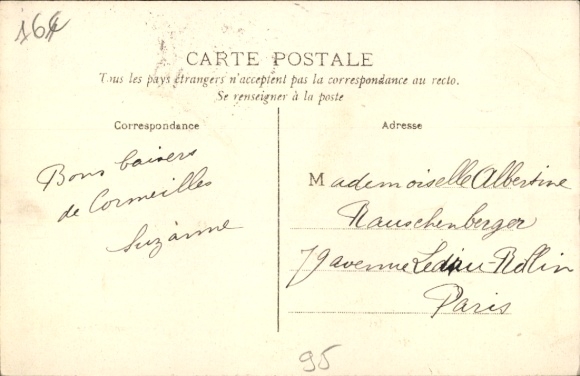 164
CARTE POSTALE
Tous les pays étrangers n'acceptent pas la correspondance au recto.
Se renseigner à la poste
Correspondance
Bons baisers
de Cormeilles
Suzanne
Adresse
Mademoiselle Albertine
Rauschenberger
79 avenue Ledru-Rollin
Paris
95